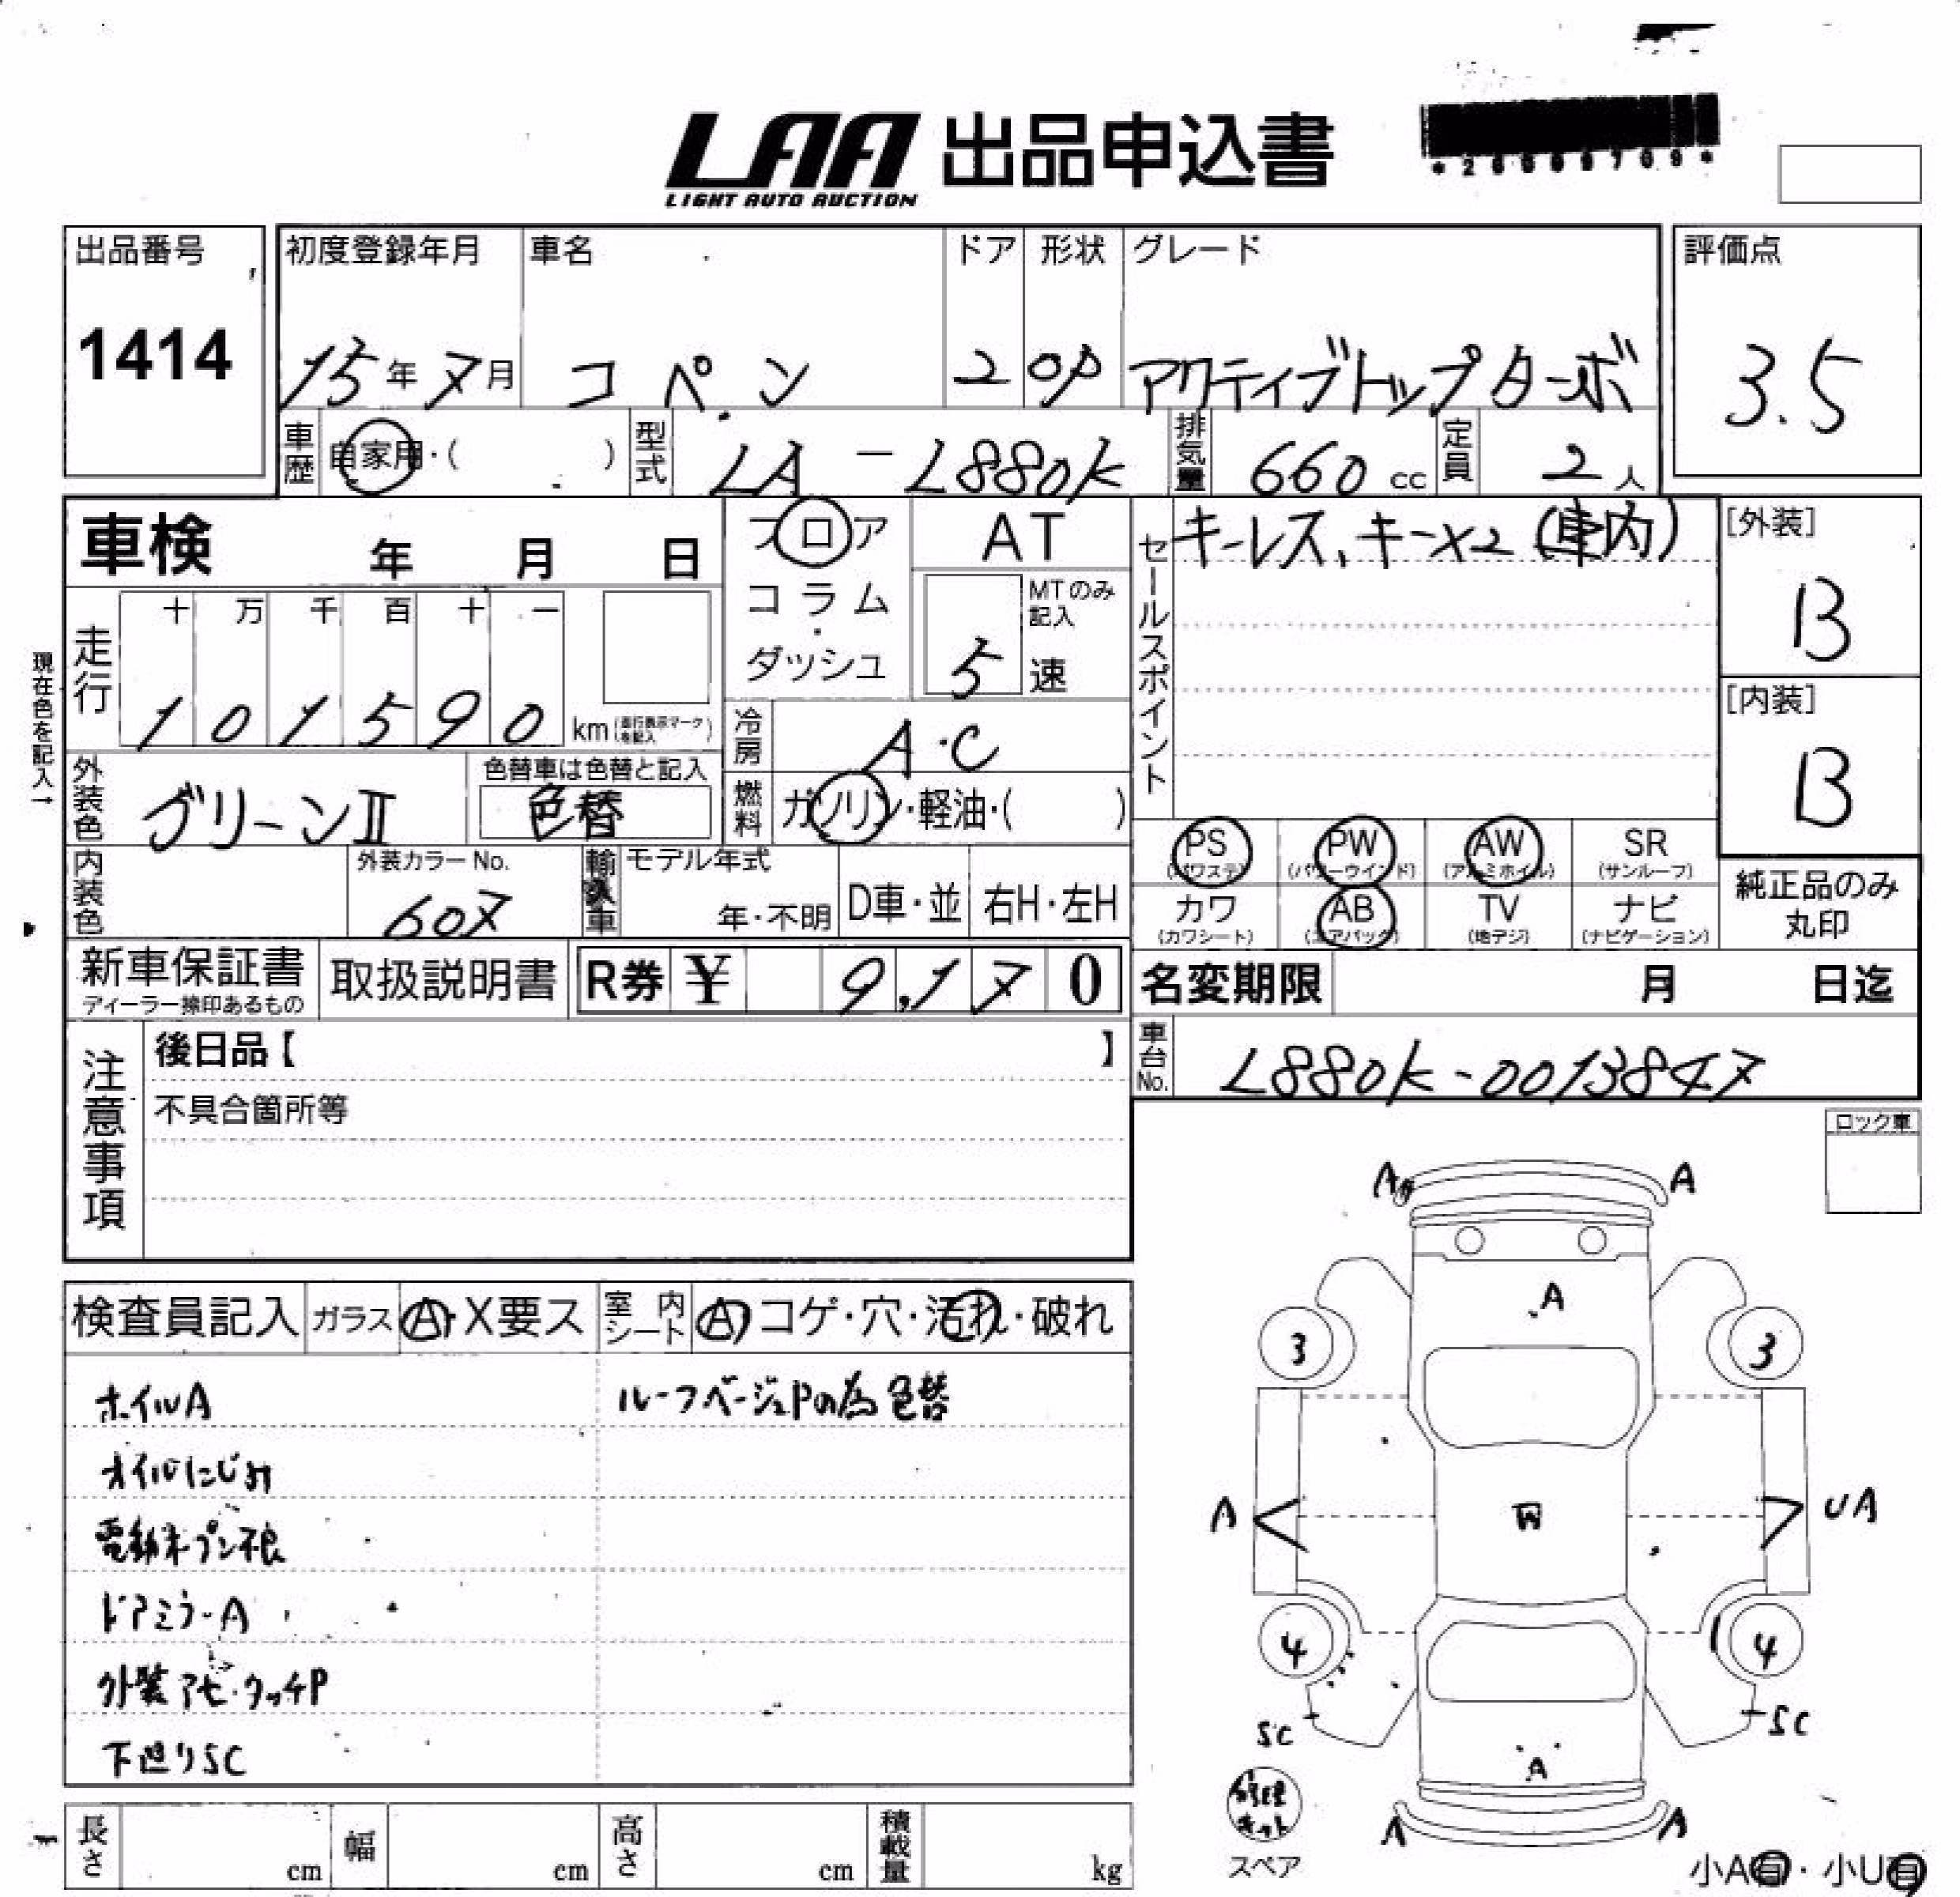 LAA 出品申込書
LIGHT AUTO AUCTION
出品番号 初度登録年月 車名 ドア 形状 グレード 評価点
1414 15年7月 コペン 2 OP アクティブトップターボ 3.5
車歴 自家用・( ) 型式 LA-L880K 排気量 660cc 定員 2人
車検 年 月 日 フロア AT セールスポイント キーレス、キー×2(車内) [外装]
コラム・ダッシュ MTのみ記入 5速 B
現在色を記入→
走行 十 万 千 百 十 一
1 0 1 5 9 0 km(走行表示マークを記入)
冷房 A・C [内装]
外装色 グリーンⅡ 色替車は色替と記入 色替 燃料 ガソリン・軽油・( ) B
PS(パワステ) PW(パワーウインド) AW(アルミホイル) SR(サンルーフ)
内装色 外装カラーNo. 607 輸入車 モデル年式 年・不明 D車・並 右H・左H
カワ(カワシート) AB(エアバッグ) TV(地デジ) ナビ(ナビゲーション) 純正品のみ丸印
新車保証書 ディーラー捺印あるもの 取扱説明書 R券 ¥ 9,170 名変期限 月 日迄
注意事項 後日品【 】 車台No. L880K-0013847
不具合箇所等
ロック車
検査員記入 ガラス A・X要ス 室内シート A・コゲ・穴・汚れ・破れ
ホイルA ルーフベージュPの為色替
オイルにじみ
電動オープン不良
ドアミラーA
外装アセ・タッチP
下廻りSC
A A
A
3 3
A W UA
4 4
SC SC
A
A A
修理キット
スペア
小A有・小U有
長さ cm 幅 cm 高さ cm 積載量 kg